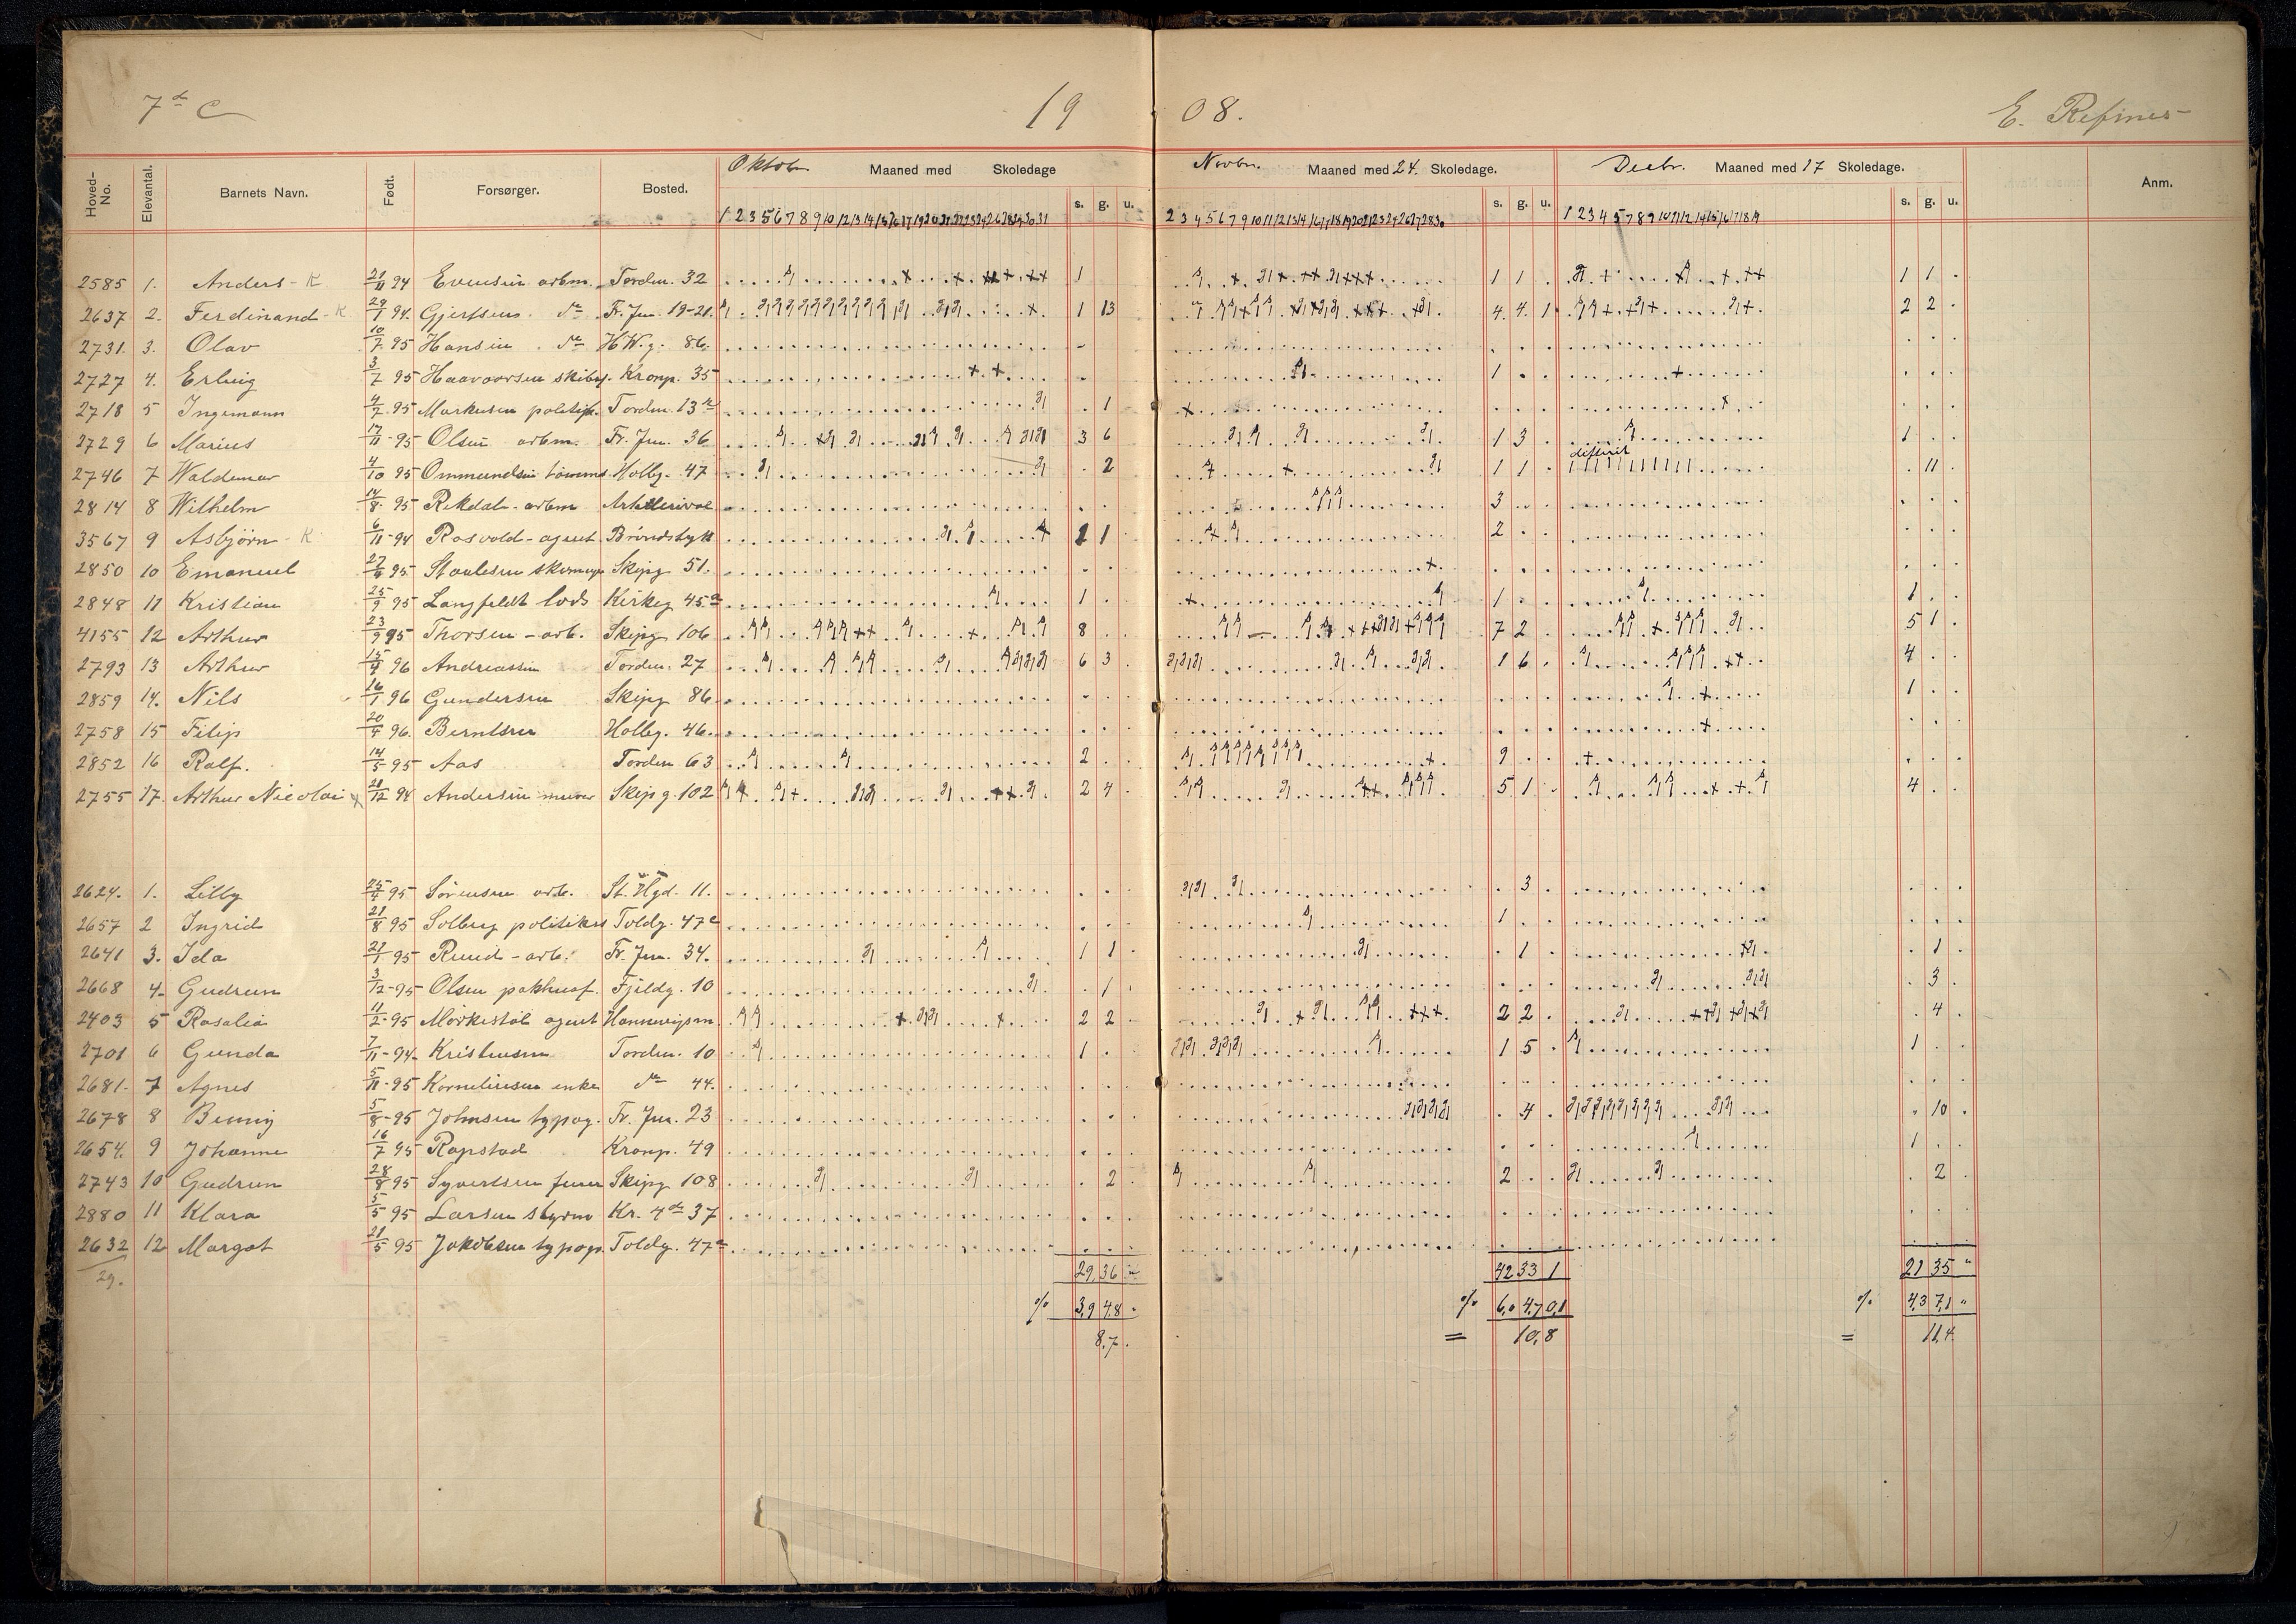 7de C 19 08. E. Refsnes
Hoved-No. Elevantal. Barnets Navn. Født. Forsørger. Bosted. Oktob. Maaned med Skoledage s. g. u. Novbr. Maaned med 24. Skoledage. s. g. u. Decbr. Maaned med 17 Skoledage. s. g. u. Anm.
1 2 3 5 6 7 8 9 10 12 13 14 15 16 17 19 20 21 22 23 24 26 27 28 29 30 31 2 3 4 5 6 7 9 10 11 12 13 14 16 17 18 19 20 21 23 24 26 27 28 30 1 2 3 4 5 7 8 9 10 11 12 14 15 16 17 18 19
2585 1. Anders - K 21/11 94 Evensen arbm. Torden. 32 1 1 1 1 1
2637 2. Ferdinand - K 29/1 94. Gjertsen do Fr. Jun. 19-21. 1 13 4. 4. 1 2 2
2731. 3. Olav 10/7 95 Hansen do H.W.g. 86.
2727 4. Erling 3/7 95 Haavorsen skibsf. Kronp. 35 1
2718 5 Ingemann 4/7 95 Markusen politik. Torden. 13 1
2729 6 Marius 17/11 95 Olsen arbm. Fr. Jun. 36 3 6 1 3 1
2746 7 Waldemar 4/10 95 Ommundsen tømmd. Holbg. 47 2 1 1 difterit 11
2814 8 Wilhelm 14/8 95 Rekdal arbm 3
3567 9 Asbjörn - K 6/11 94 Rosvold - agent 2 1 2
2850 10 Emanuel 27/9 95 Staalesen skomager Skipg 51.
2848 11 Kristian 25/9 95 Langfeldt lods Kirkeg 45a 1 1 1
4155 12 Arthur 23/9 95 Thorsen - arb. Skipg 106 8 7 2 5 1
2793 13 Arthur 15/4 96 Andreassen Torden. 27 6 3 1 6 4
2859 14. Nils 16/1 96 Gundersen Skipg 86 1
2758 15 Filip 20/4 96. Berntsen Holbg. 46.
2852 16 Ralf. 14/5 95 Aas Torden 63 2 9
2755 17. Arthur Nicolai 21/12 94 Andersen murer Skipg. 102 2 4 5 1 4
2624. 1. Lilly 25/4 95 Sörensen arb. St. Hgd. 11. 3
2657 2 Ingrid 21/8 95 Solberg politikst Toldg. 47c 1
2641 3. Ida 21/1 95 Ruud - arb. Fr. Jun. 34. 1 1 1 1
2668 4. Gudrun 3/12 95 Olsen pakhusf. Fjeldg. 10 1 3
2403 5 Rosalie 11/2 95 Mörkestöl agent Hannevigsm. 2 2 2 2 4
2701 6 Gunda 7/11 94 Kristensen Torden. 10 1 1 5 1
2681. 7 Agnes 5/11 95 Korneliusen enke do 44.
2678 8 Benny 5/8 95 Johnsen typog. Fr. Jun. 23 4 10
2654. 9 Johanne 16/7 95 Rapstad Kronp. 49 1
2743 10 Gudrun 28/8 95 Syvertsen furer Skipg 108 2 2 2
2880 11 Klara 5/5 95 Larsen styrm Kr. 4de 37
2632 12 Margot 21/5 95 Jakobsen typogr. Toldg. 47a
29. 29, 36 " 42 33 1 21 35 "
% 3,9 4,8 " % 6,0 4,7 0,1 % 4,3 7,1 "
8,7. = 10,8 = 11,4